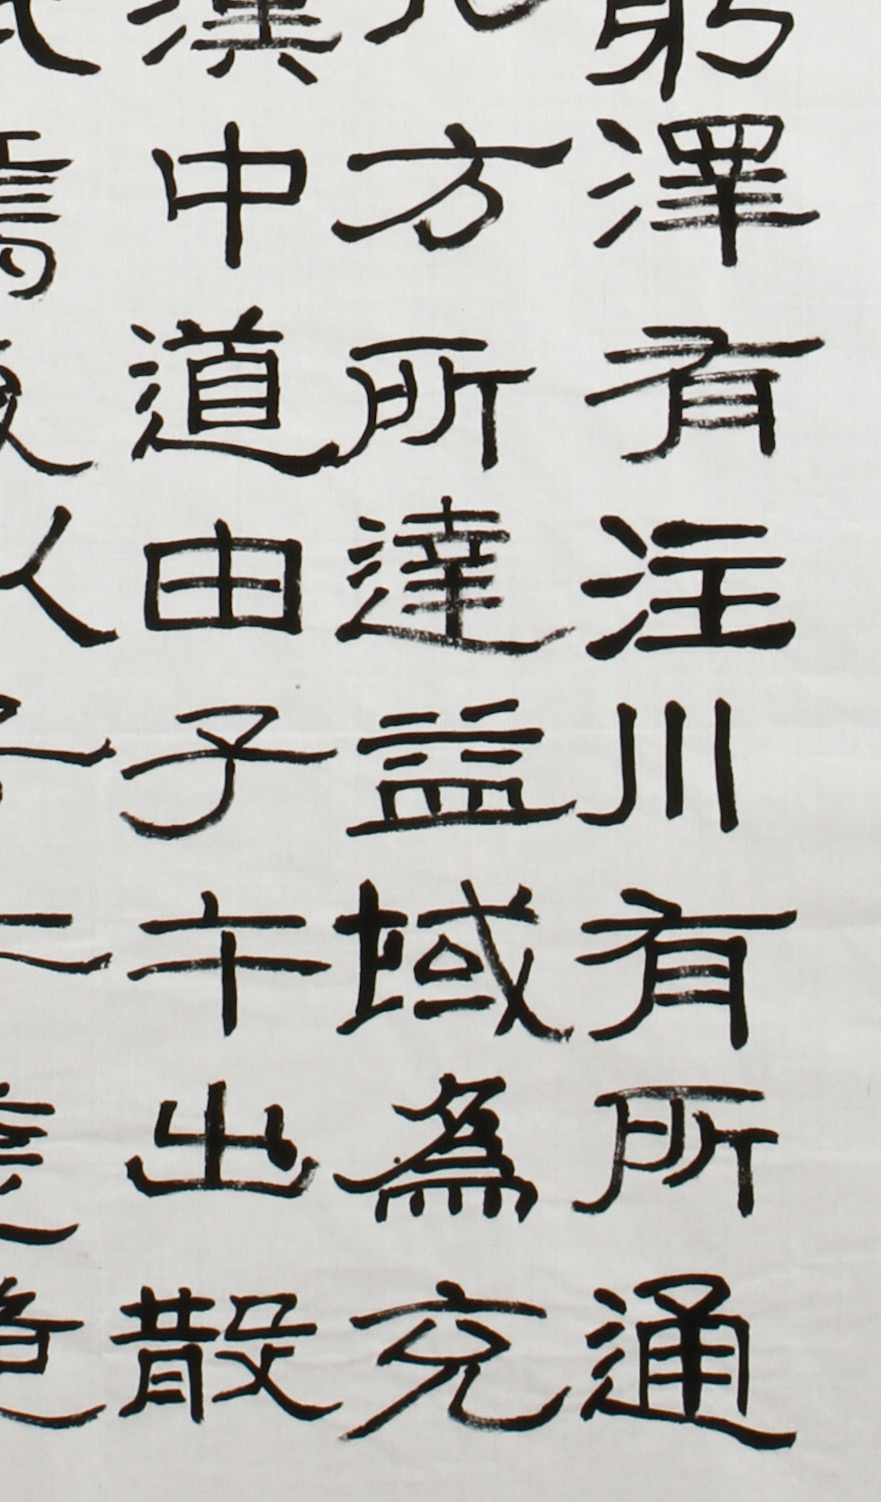 躬澤有注川有所通
方所達益域爲充
漢中道由子午出散